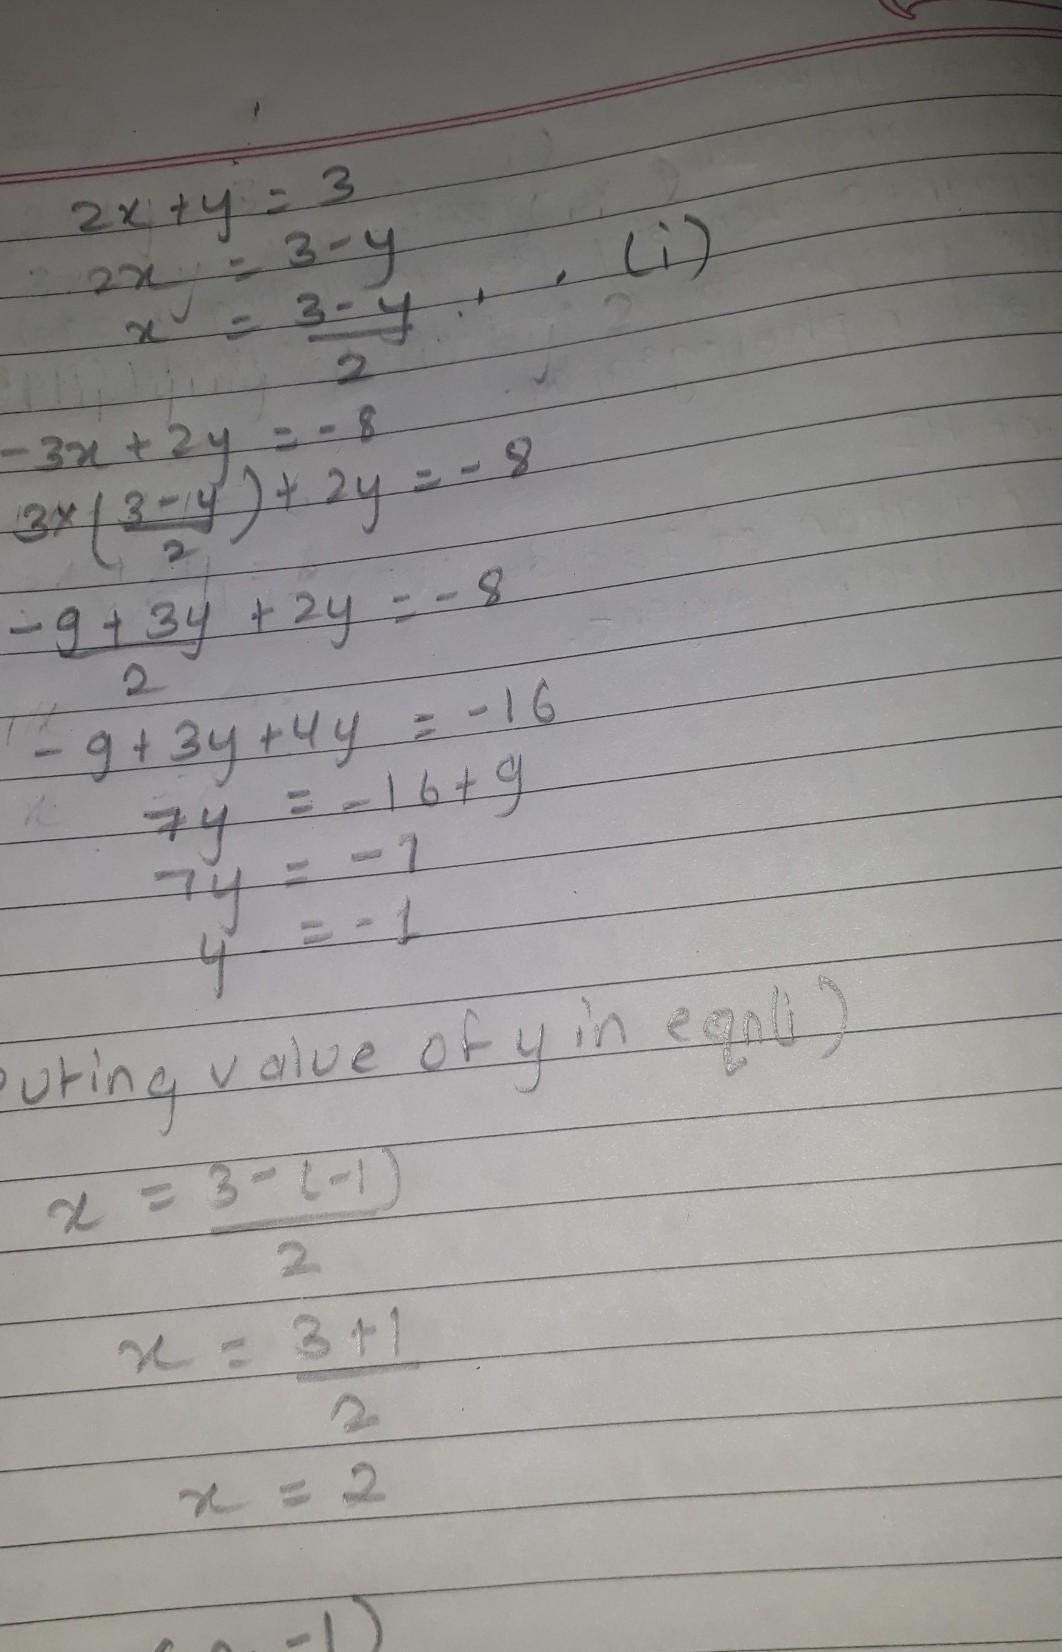 2x + y = 3
2x = 3 - y
x = (3 - y)/2 . . . (i)
-3x + 2y = -8
3x((3 - y)/2) + 2y = -8
(-9 + 3y)/2 + 2y = -8
-9 + 3y + 4y = -16
7y = -16 + 9
7y = -7
y = -1
value of y in eqn(i)
x = (3 - (-1))/2
x = (3 + 1)/2
x = 2
-1)